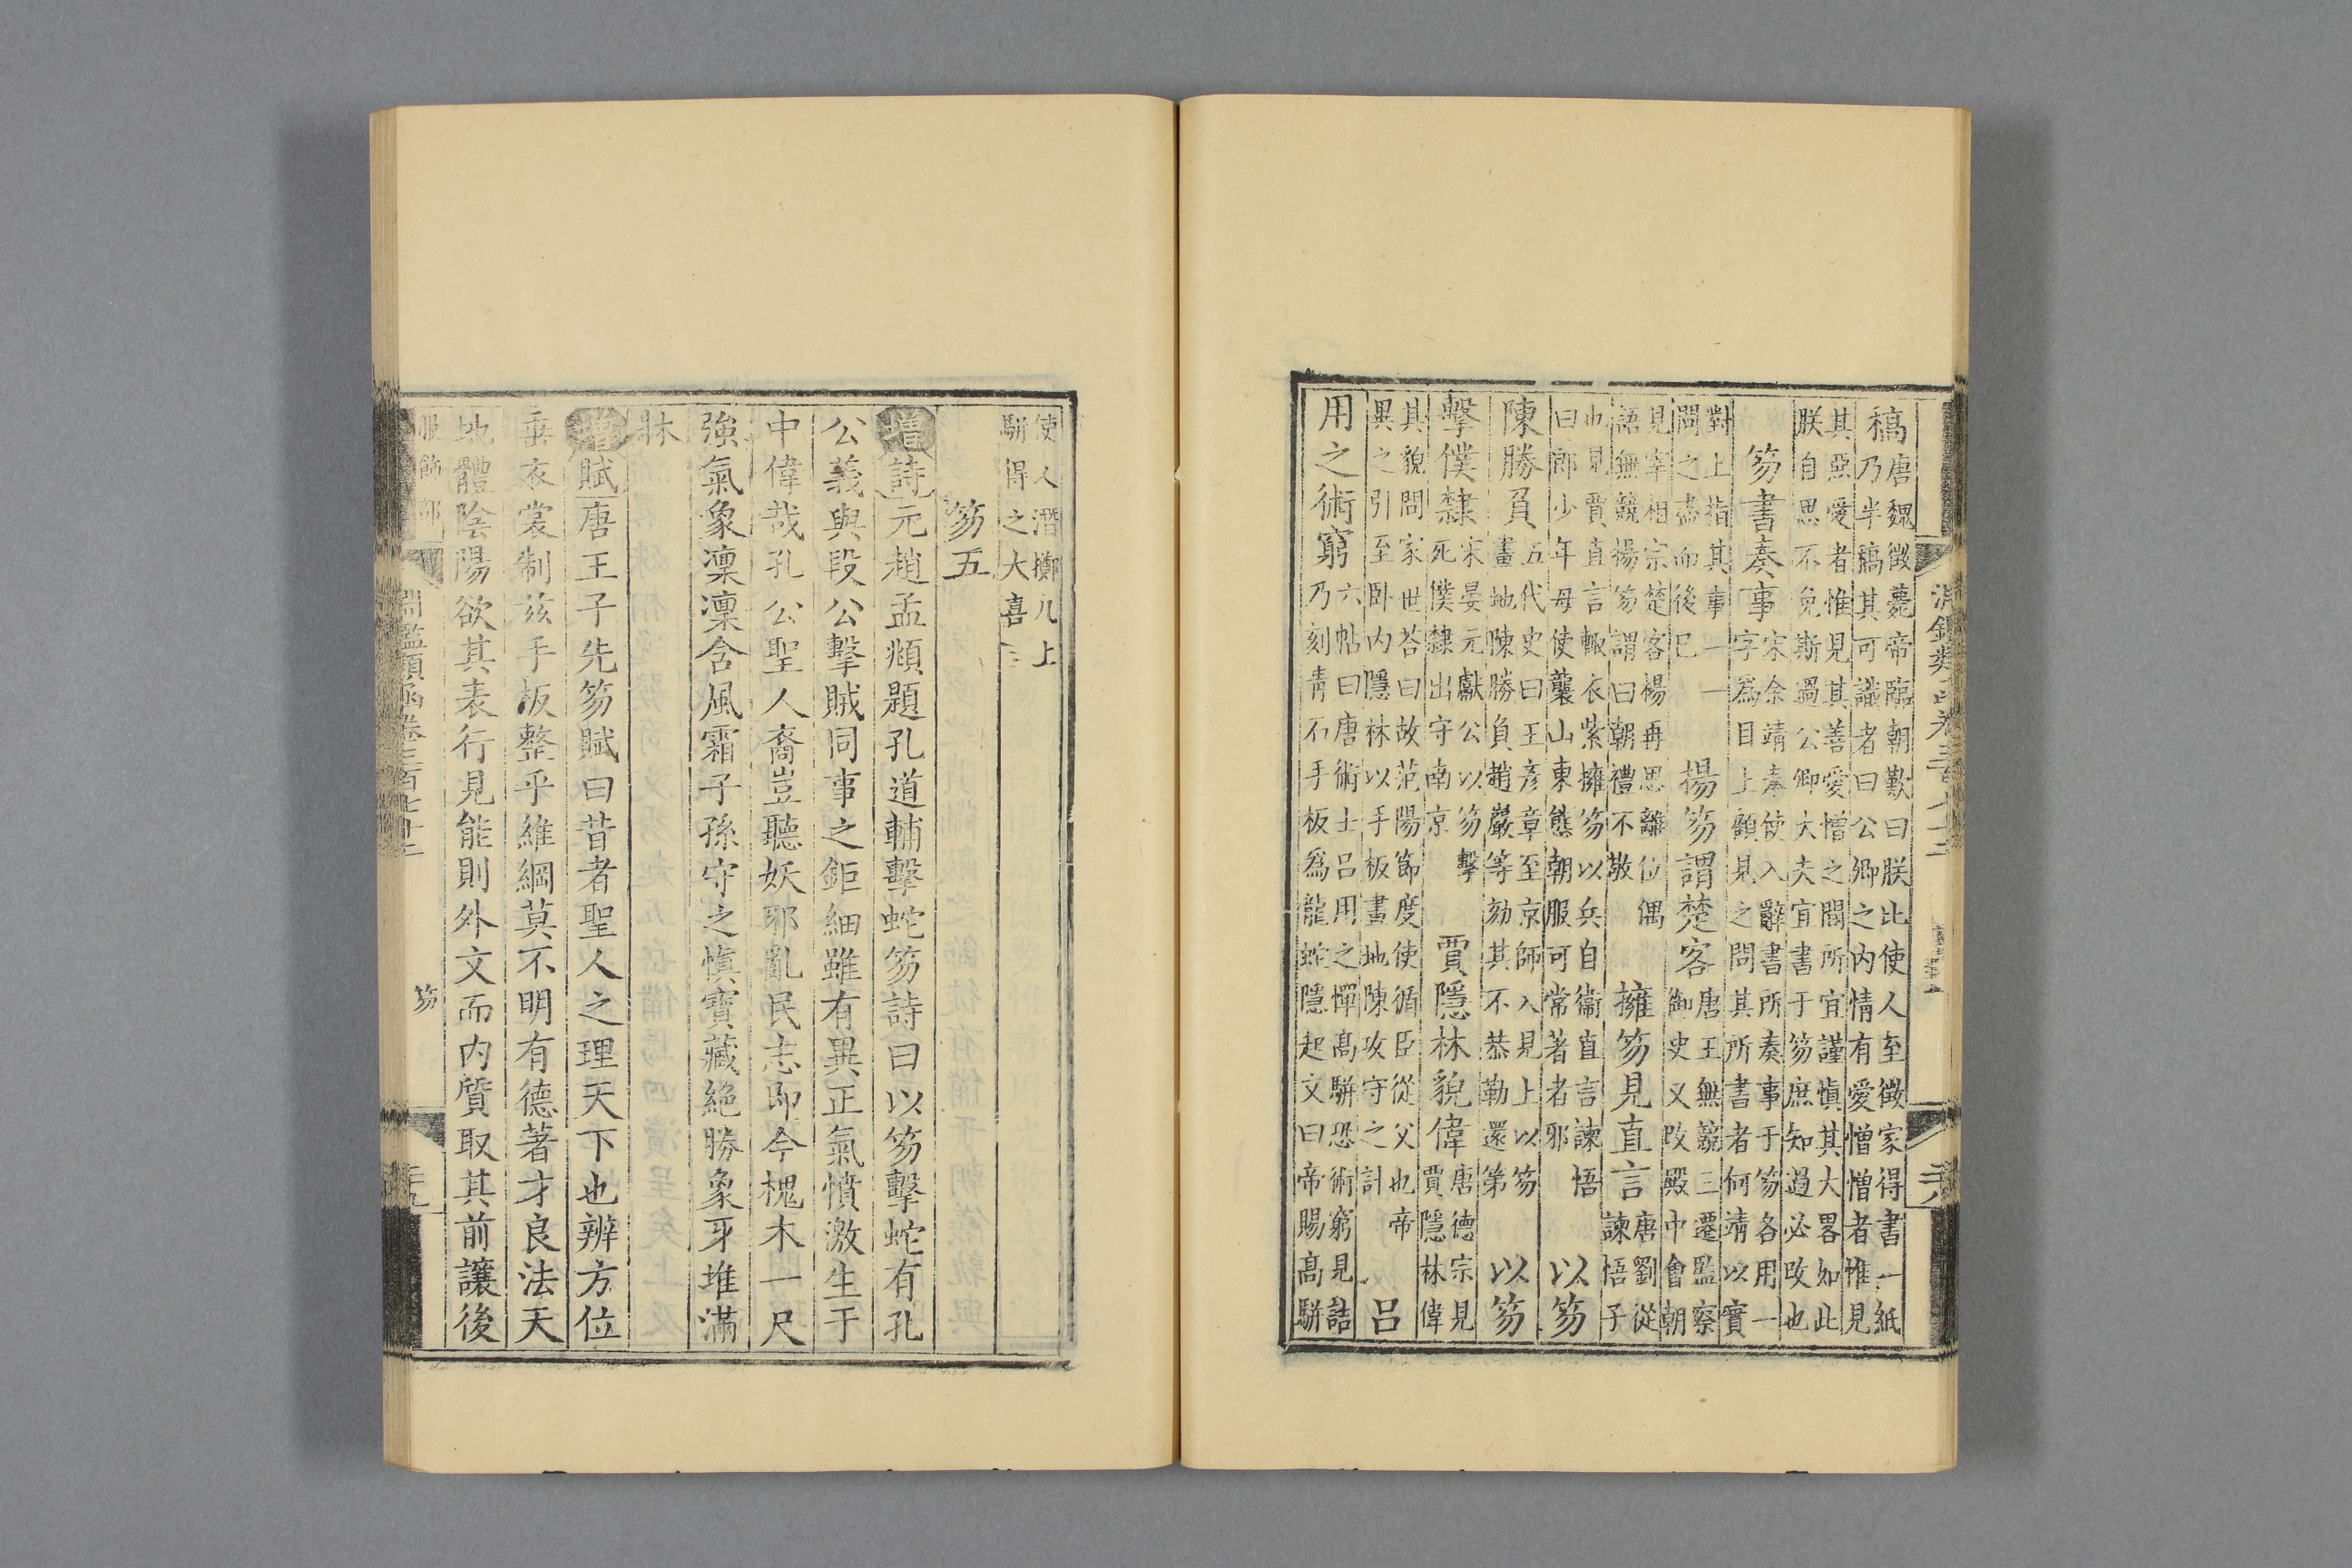 淵鑑類函卷三百七十二
稿
唐魏徵薨帝臨朝歎曰朕比使人至徵家得書一紙
乃半稿其可識者曰公卿之內情有愛憎憎者惟見
其惡愛者惟見其善愛憎之閒所宜謹慎其大畧如此
朕自思不免斯過公卿大夫宜書于笏庶知過必改也
笏書奏事
宋余靖奉使入辭書所奏事于笏各用一
字爲目上顧見之問其所書者何靖以實
對上指其事一一
問之盡而後已
揚笏謂楚客
唐王無競三遷監察
御史又改殿中會朝
見宰相宗楚客楊再思離位偶
語無競揚笏謂曰朝禮不敬
擁笏見直言
唐劉從
諫悟子
也見賈直言輙衣紫擁笏以兵自衞直言諫悟
曰郎少年毋使襲山東態朝服可常著者邪
以笏
陳勝負
五代史曰王彥章至京師入見上以笏
畫地陳勝負趙巖等劾其不恭勒還第
以笏
擊僕隸
宋晏元獻公以笏擊
死僕隸出守南京
賈隱林貌偉
唐德宗見
賈隱林偉
其貌問家世荅曰故范陽節度使循臣從父也帝
異之引至卧內隱林以手板畫地陳攻守之計
呂
用之術窮
六帖曰唐術士呂用之憚高駢恐術窮見詰
乃刻青石手板爲龍蛇隱起文曰帝賜高駢
使人潛擲几上
駢得之大喜
笏五
增詩元趙孟頫題孔道輔擊蛇笏詩曰以笏擊蛇有孔
公義與段公擊賊同事之鉅細雖有異正氣憤激生于
中偉哉孔公聖人裔豈聽妖邪亂民志卽今槐木一尺
強氣象凜凜含風霜子孫守之慎寶藏絕勝象牙堆滿
牀
增賦唐王子先笏賦曰昔者聖人之理天下也辨方位
垂衣裳制兹手板整乎維綱莫不明有德著才良法天
地體陰陽欲其表行見能則外文而内質取其前讓後
服飾部
淵鑑類函卷三百七十二
笏